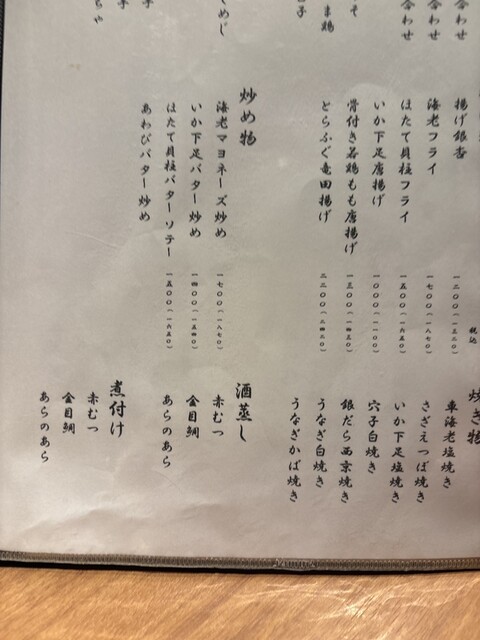 合わせ
合わせ
合わせ
揚げ銀杏 一二〇〇(一三二〇)
税込
海老フライ 一七〇〇(一八七〇)
ほたて貝柱フライ 一五〇〇(一六五〇)
いか下足唐揚げ 一〇〇〇(一一〇〇)
骨付き若鶏もも唐揚げ 一三〇〇(一四三〇)
とらふぐ竜田揚げ 二二〇〇(二四二〇)
炒め物
海老マヨネーズ炒め 一七〇〇(一八七〇)
いか下足バター炒め 一四〇〇(一五四〇)
ほたて貝柱バターソテー 一五〇〇(一六五〇)
あわびバター炒め
焼き物
車海老塩焼き
さざえつぼ焼き
いか下足塩焼き
穴子白焼き
銀だら西京焼き
うなぎ白焼き
うなぎかば焼き
酒蒸し
赤むつ
金目鯛
あらのあら
煮付け
赤むつ
金目鯛
あらのあら